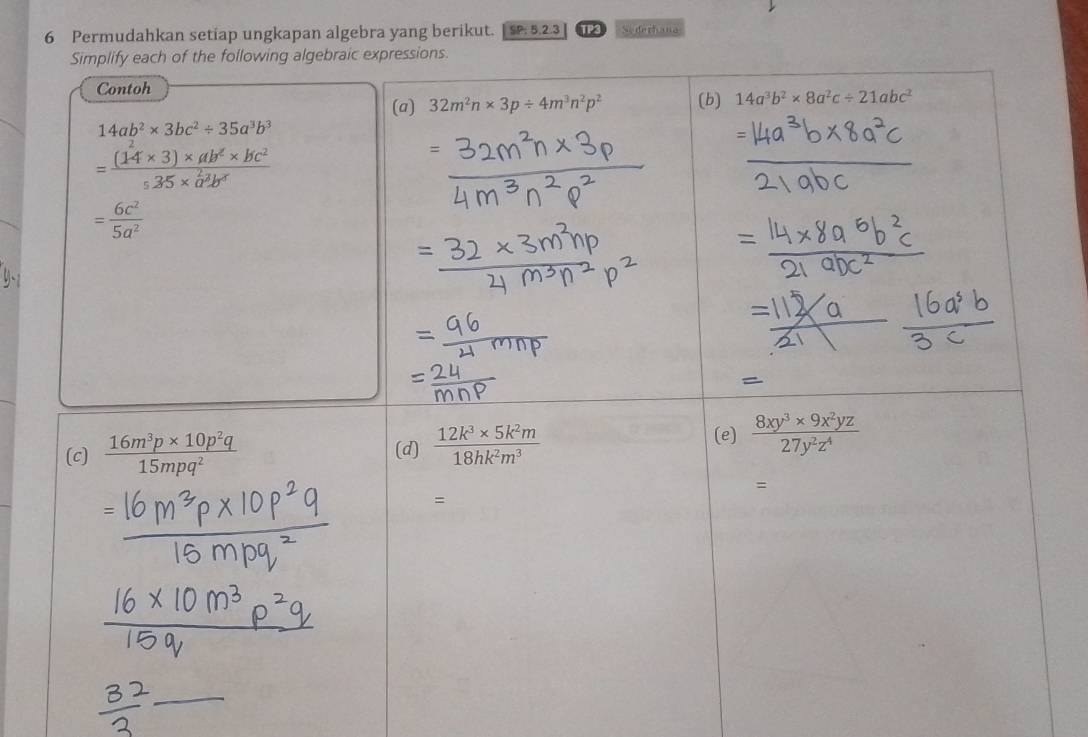 6 Permudahkan setiap ungkapan algebra yang berikut. SP: 5.2.3 TP3 Sederhana
Simplify each of the following algebraic expressions.
Contoh
14ab² × 3bc² ÷ 35a³b³
= (14 × 3) × ab² × bc² / 35 × a³b³
2
5 2
= 6c² / 5a²
(a) 32m²n × 3p ÷ 4m³n²p²
= 32m²n × 3p / 4m³n²p²
= 32 × 3m²np / 4m³n²p²
= 96 / 4 mnp
= 24 / mnp
(b) 14a³b² × 8a²c ÷ 21abc²
= 14a³b × 8a²c / 21abc
= 14 × 8a⁵b²c / 21 abc²
= 112 a⁵ / 21 16a⁵b / 3c
=
(c) 16m³p × 10p²q / 15mpq²
= 16m³p × 10p²q / 15mpq²
16 × 10m³p²q / 15q
32 / 3
(d) 12k³ × 5k²m / 18hk²m³
=
(e) 8xy³ × 9x²yz / 27y²z⁴
=